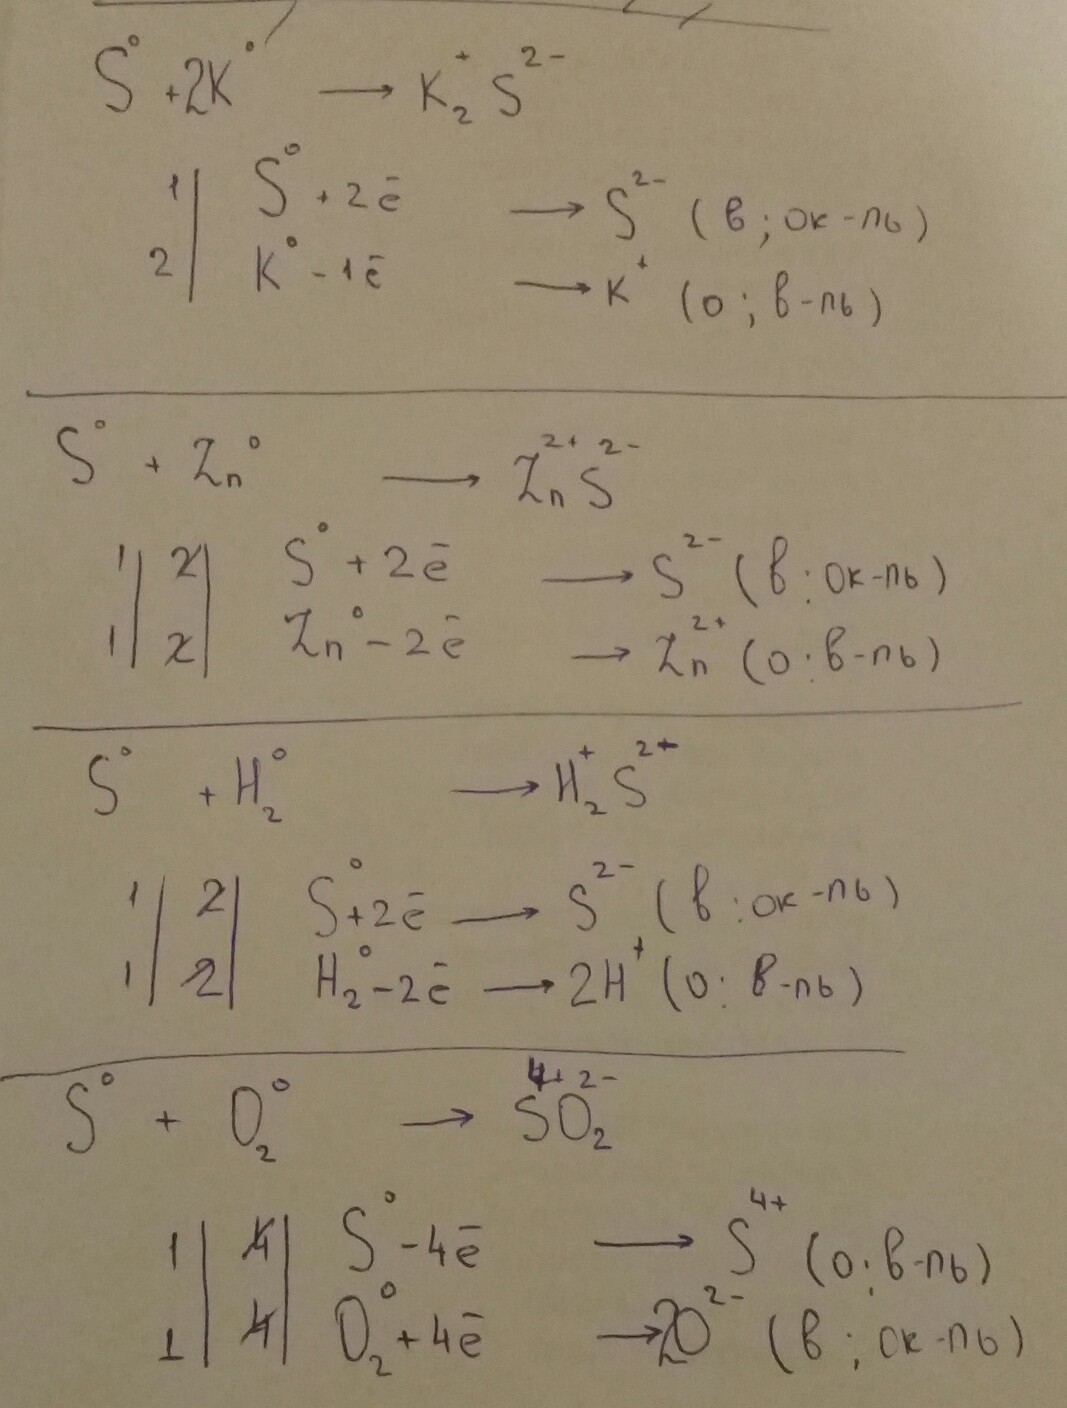 S⁰ + 2K⁰ → K₂⁺ S²⁻
1 | S⁰ + 2ē → S²⁻ (в; ок-ль)
2 | K⁰ - 1ē → K⁺ (о; в-ль)
S⁰ + Zn⁰ → Zn²⁺ S²⁻
1 | 2 | S⁰ + 2ē → S²⁻ (в: ок-ль)
1 | 2 | Zn⁰ - 2ē → Zn²⁺ (о: в-ль)
S⁰ + H₂⁰ → H₂⁺ S²⁺
1 | 2 | S⁰ + 2ē → S²⁻ (в: ок-ль)
1 | 2 | H₂⁰ - 2ē → 2H⁺ (о: в-ль)
S⁰ + O₂⁰ → S⁴⁺O₂²⁻
1 | 4 | S⁰ - 4ē → S⁴⁺ (о; в-ль)
1 | 4 | O₂⁰ + 4ē → 2O²⁻ (в; ок-ль)